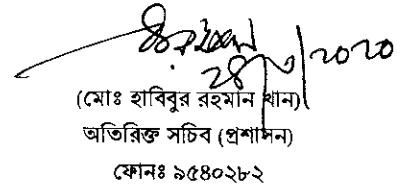 ২৪/৩/২০২০
(মোঃ হাবিবুর রহমান খান)
অতিরিক্ত সচিব (প্রশাসন)
ফোনঃ ৯৫৪০২৮২